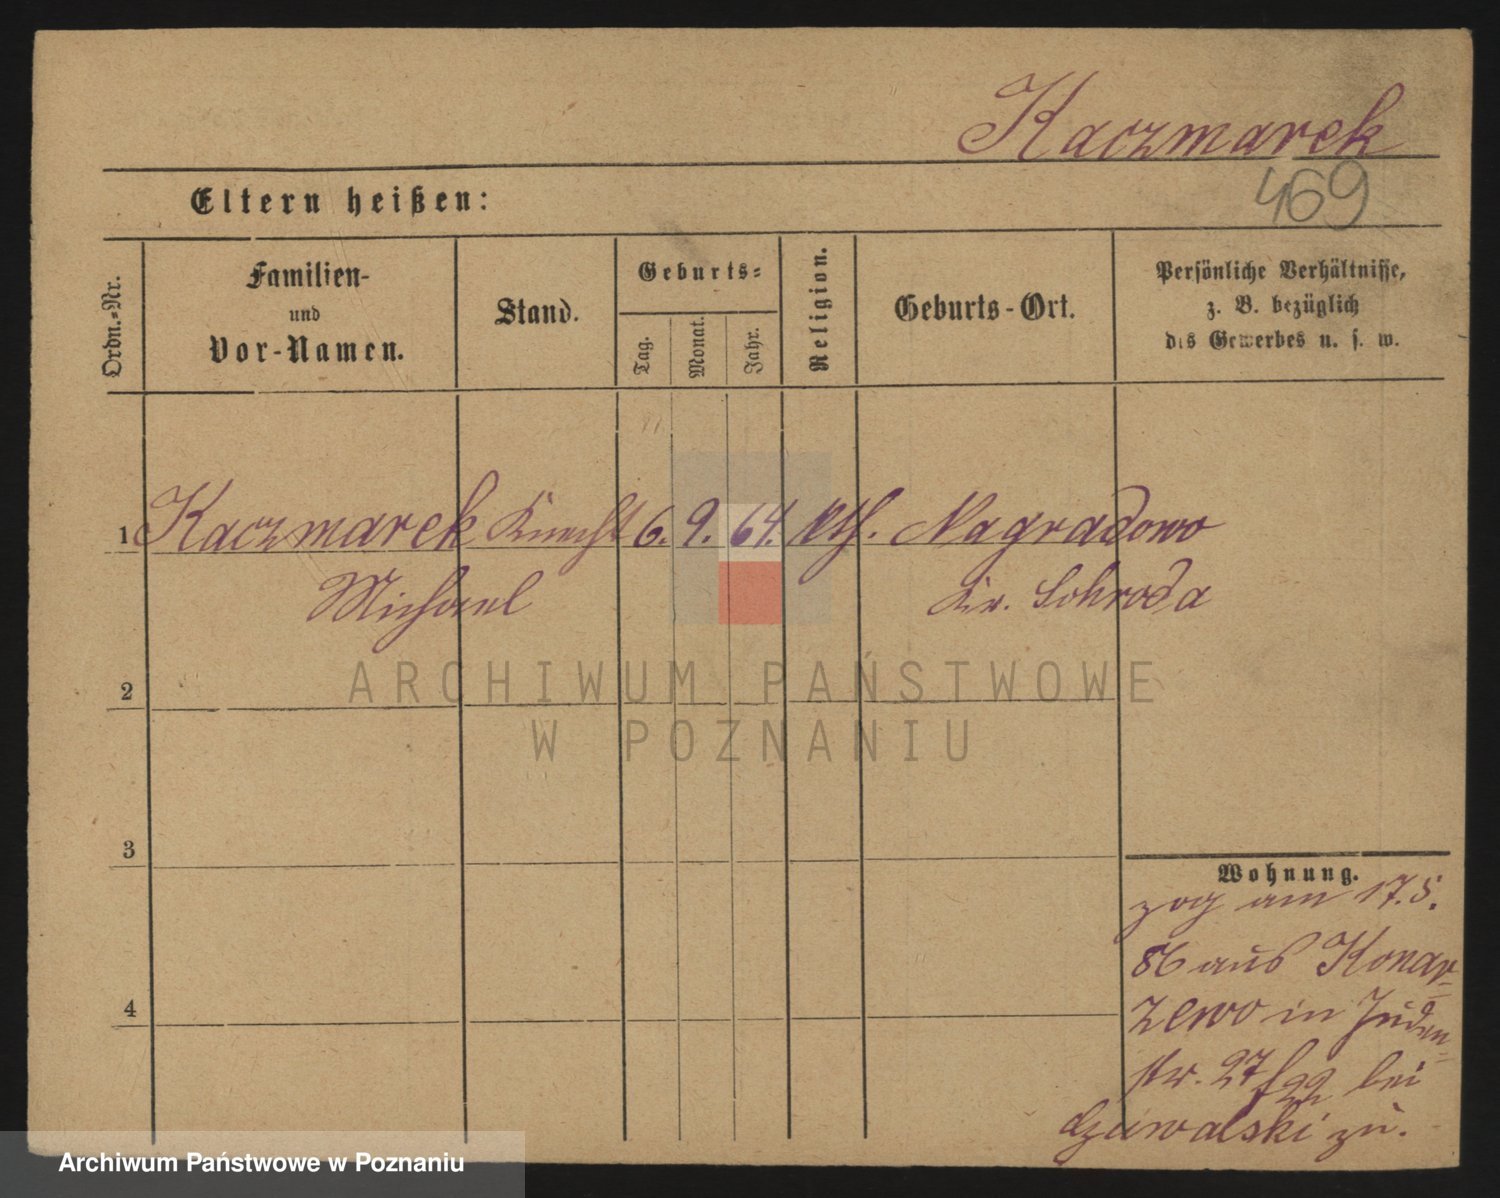 Kaczmarek
469
Eltern heißen:
Ordn.-Nr.
Familien-
und
Vor-Namen.
Stand.
Geburts-
Tag.
Monat.
Jahr.
Religion.
Geburts-Ort.
Persönliche Verhältnisse,
z. B. bezüglich
des Gewerbes u. s. w.
1 Kaczmarek Knecht 6. 9. 64. kth. Nagradowo
Michael Kr. Schroda
ARCHIWUM PAŃSTWOWE
W POZNANIU
2
3
4
Wohnung.
zog am 17. 5.
86 aus Konar-
zewo in Juden-
str. 27/ bei
zu.
Archiwum Państwowe w Poznaniu